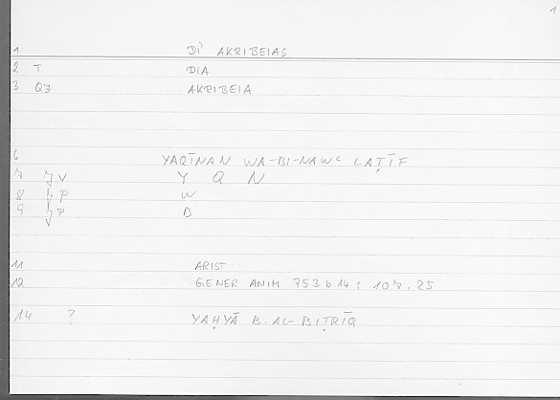 1
1 DI' AKRIBEIAS
2 T DIA
3 QJ AKRIBEIA
6 YAQĪNAN WA-BI-NAWʿ LAṬĪF
7 V Y Q N
8 P W
9 P B
11 ARIST
12 GENER ANIM 753 b 14 ; 107.25
14 ? YAḤYĀ B. AL-BIṬRĪQ